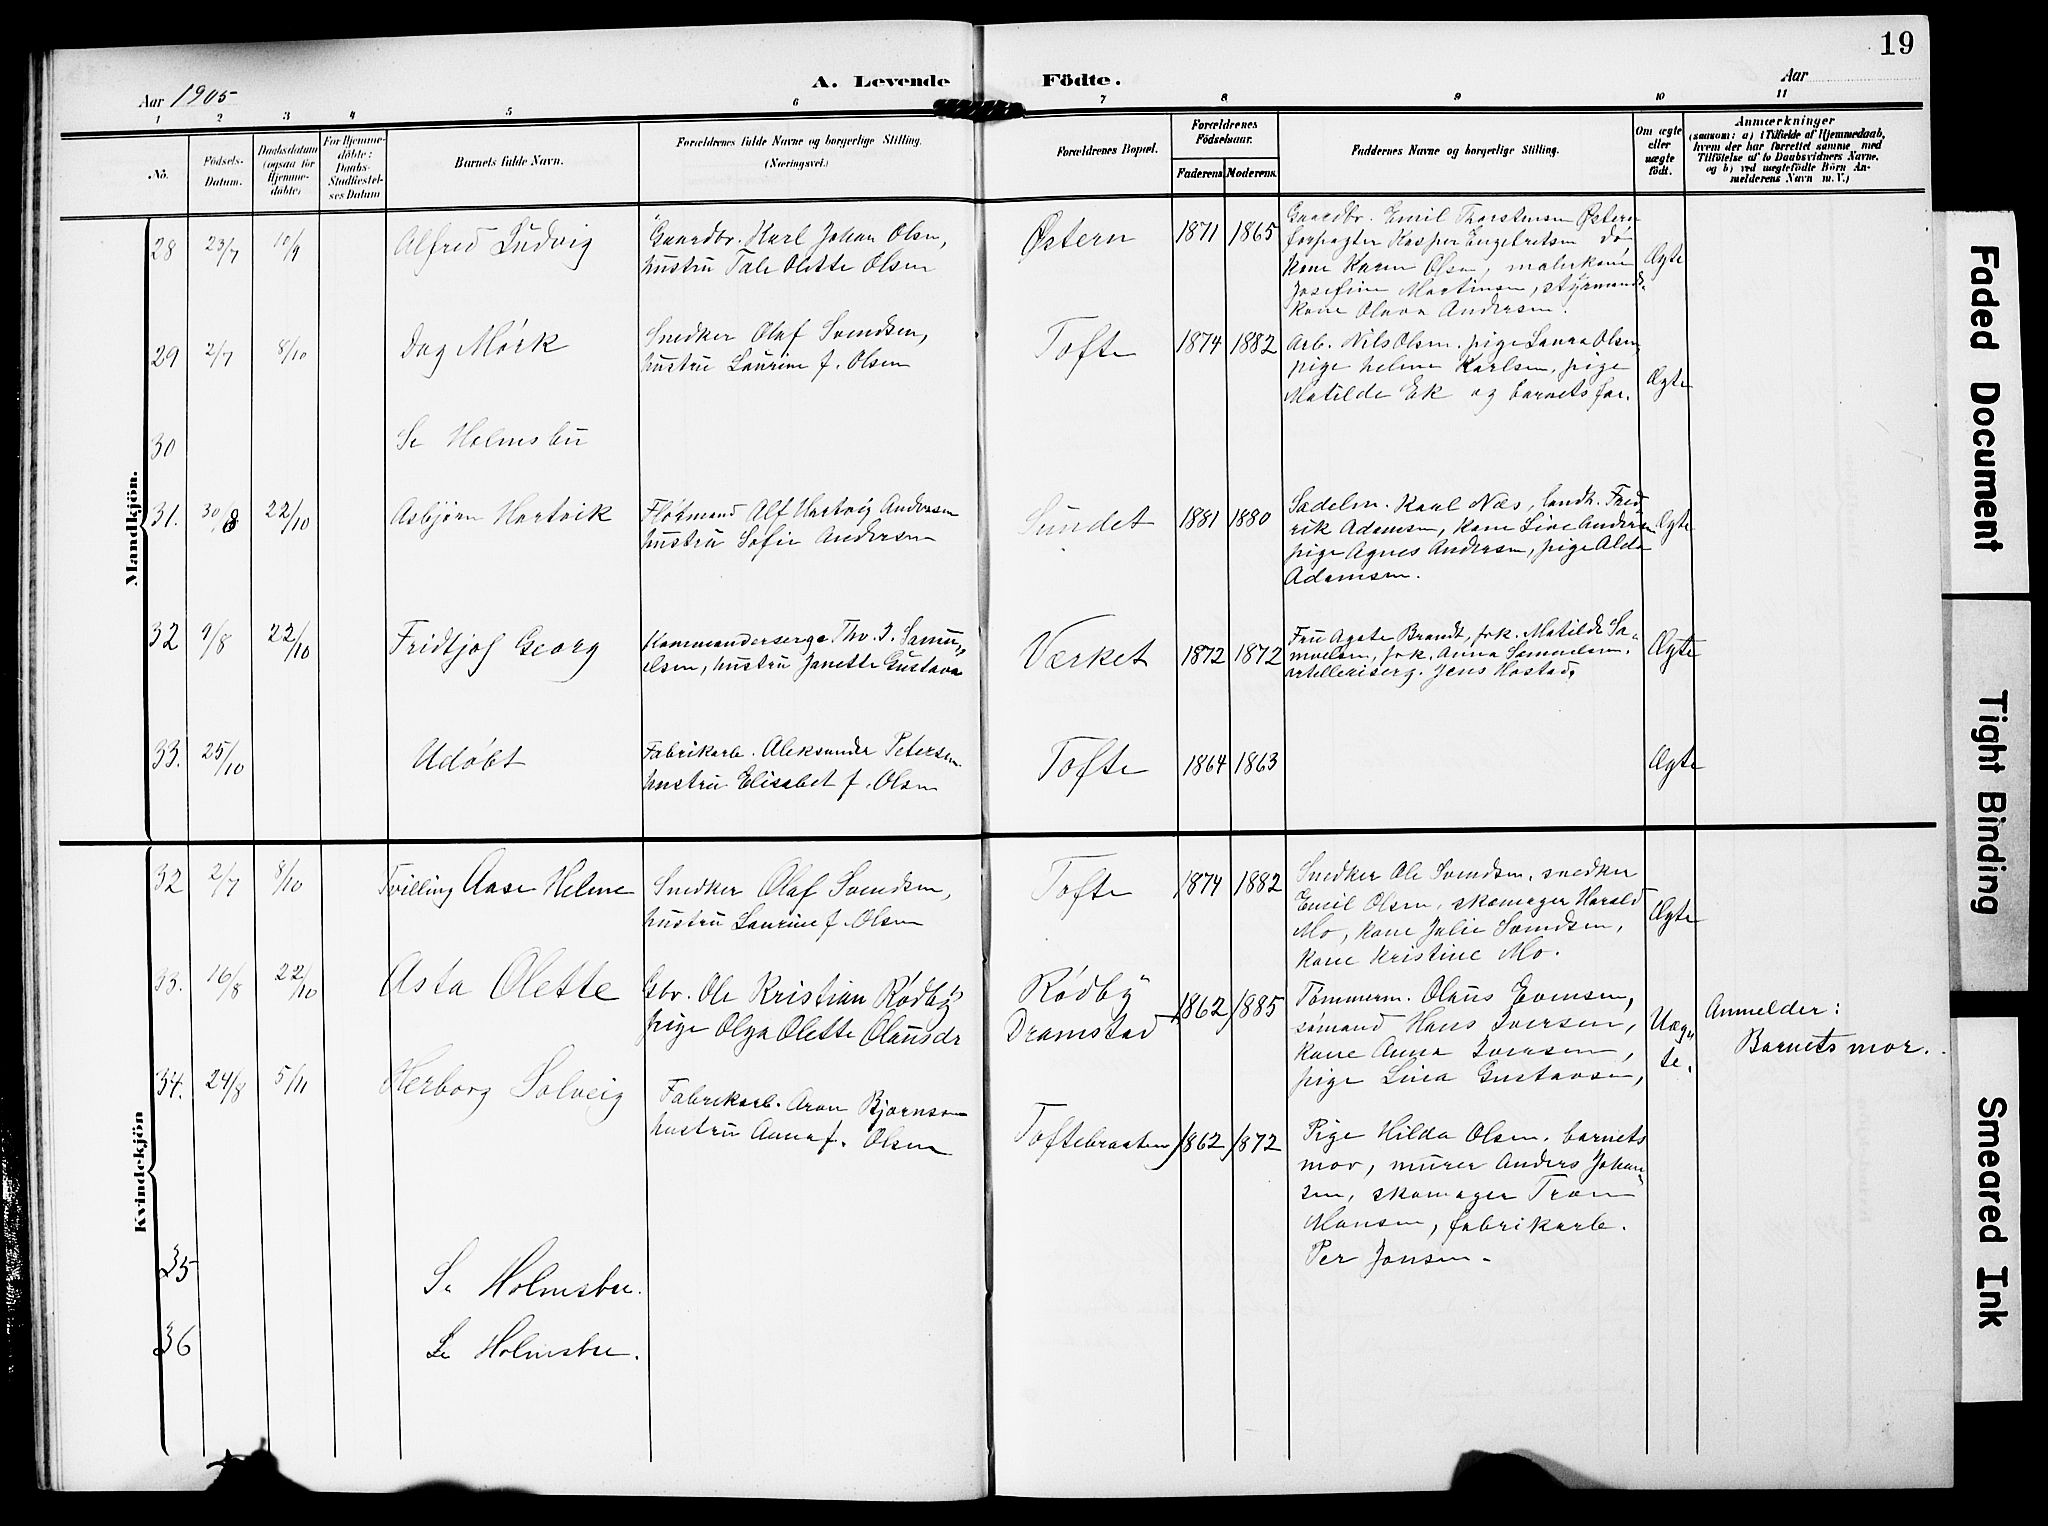 19
A. Levende Födte.
Aar 1905
Aar
1 2 3 4 5 6 7 8 9 10 11
No.
Födsels-
Datum.
Daabsdatum
(ogsaa for
Hjemme-
döbte)
For Hjemme-
döbte:
Daabs-
Stadfæstel-
ses Datum
Barnets fulde Navn.
Forældrenes fulde Navne og borgerlige Stilling.
(Næringsvei.)
Forældrenes Bopæl.
Forældrenes
Födselsaar.
Faderens Moderens.
Faddernes Navne og borgerlige Stilling.
Om ægte
eller
uægte
födt.
Anmærkninger
(saasom: a) i Tilfælde af Hjemmedaab,
hvem der har forrettet samme med
Tilföielse af to Daabsvidners Navne.
og b) ved uægtefödte Börn An-
melderens Navn m. V.)
Mandkjön.
28 23/7 10/9 Alfred Ludvig
Gaardbr. Karl Johan Olsen,
hustru Tale Olette Olsen
Østern 1871 1865
Gaardbr. Emil Thorstensen Østern
forpagter Kasper Engebretsen
kone Karen Olsen, malerkone
Josefine Martinsen, styrmands-
kone Olava Andersen.
Ægte
29 2/7 8/10 Dag Mørk
Snedker Olaf Svendsen,
hustru Laurine f. Olsen
Tofte 1874 1882
Arb. Nils Olsen, pige Laura Olsen,
pige Helene Karlsen, pige
Matilde Ek og barnets far.
Ægte
30 Se Holmsbu
31. 30/8 22/10 Asbjørn Hartvik
Fløtmand Alf Hartvig Andersen
hustru Sofie Andersen
Sundet 1881 1880
Sadelm. Karl Næs, landh. Fred
rik Adamsen, kone Live Andersen
pige Agnes Andersen, pige Alda
Adamsen.
Ægte
32 9/8 22/10 Fridtjof Georg
Kommandersergt. Thv. I. Samu-
elsen, hustru Janette Gustava
Værket 1872 1872
Fru Agate Brandt, frk. Matilde Sa-
muelsen, frk. Anna Samuelsen.
artillerisserg. Jens Hastad,
Ægte
33. 25/10 Udøbt
Fabrikarb. Aleksander Petersen
hustru Elisabet f. Olsen
Tofte 1864 1863
Ægte
Kvindekjön
32 2/7 8/10 Tvilling Aase Helene
Snedker Olaf Svendsen,
hustru Laurine f. Olsen
Tofte 1874 1882
Snedker Ole Svendsen, snedker
Emil Olsen, skomager Harald
Mo, kone Julie Svendsen,
kone Kristine Mo.
Ægte
33. 16/8 22/10 Asta Olette
Gbr. Ole Kristian Rødby
pige Olga Olette Olausdr
Rødby
Dramstad
1862 1885
Tømmerm. Olaus Evensen,
sømand Hans Iversen,
kone Anna Iversen,
pige Lina Gustavsen,
Uæg"
te.
Anmelder:
Barnets mor.
34. 24/8 5/11 Herborg Solveig
Fabrikarb. Aron Bjørnsen
hustru Anna f. Olsen
Toftebraaten 1862 1872
Pige Hilda Olsen, barnets
mor, murer Anders Johan-
sen, skomager Tron
Monsen, fabrikarb.
Per Jonsen.
35 Se Holmsbu.
36 Se Holmsbu.
Faded Document
Tight Binding
Smeared Ink